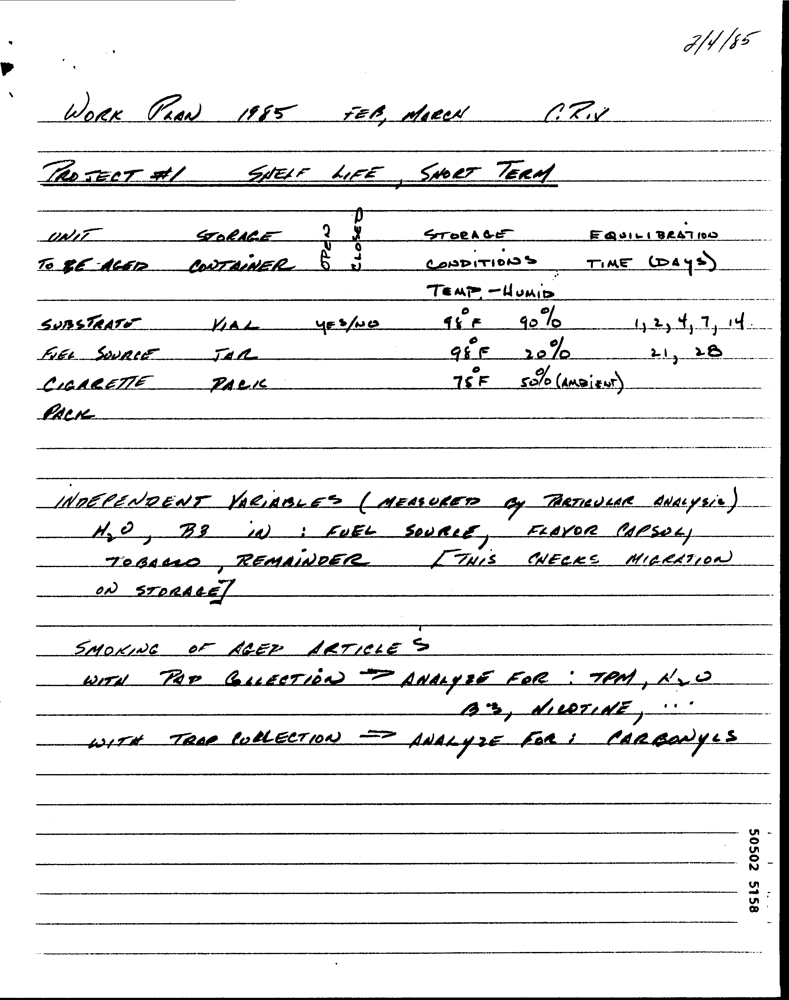 2/4/85
WORK PLAN 1985 FEB, MARCH
PROJECT #1 SHELF LIFE, SHORT TERM
UNIT STORAGE OPEN CLOSED STORAGE EQUILIBRATION
TO BE AGED CONTAINER CONDITIONS TIME (DAYS)
TEMP. - HUMID
SUBSTRATE VIAL YES/NO 98°F 90% 1, 2, 4, 7, 14
FUEL SOURCE JAR 98°F 20% 21, 28
CIGARETTE PACK 75°F 50% (AMBIENT)
PACK
INDEPENDENT VARIABLES (MEASURED BY PARTICULAR ANALYSIS)
H2O, B3 IN : FUEL SOURCE, FLAVOR CAPSUL,
TOBACCO, REMAINDER [THIS CHECKS MIGRATION
ON STORAGE]
SMOKING OF AGED ARTICLES
WITH PAD COLLECTION => ANALYZE FOR : TPM, H2O
B3, NICOTINE, ...
WITH TRAP COLLECTION => ANALYZE FOR : CARBONYLS
50502 5158